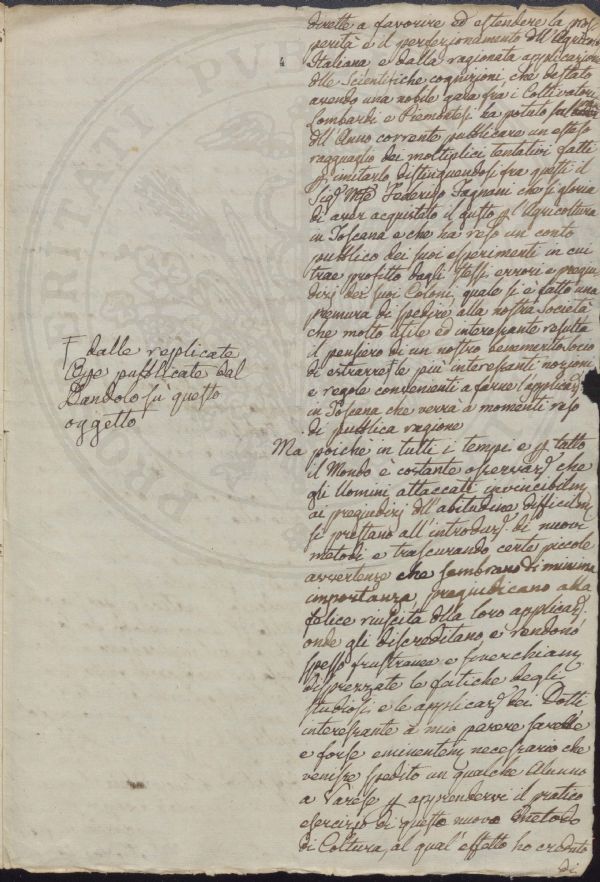 dirette a favorire ed estendere la pros
perità e il perfezionamento dll'Agricol
Italiana e dalla ragionata applicazione
dlle Scientifiche cognizioni, che destato
avendo una nobile gara fra i Coltivatori
Lombardi e Piemontesi ha potuto sul
dll'Anno corrente pubblicare un esteso
ragguaglio dei moltiplici tentativi fatti
p imitarlo distinguendosi fra questi il
Sigr Mse Federigo Fagnani che si gloria
di aver acquistato il gusto p l'Agricoltura
in Toscana e che ha reso un conto
pubblico dei suoi esperimenti in cui
trae profitto dagli stessi errori e pregiu
dizj dei suoi Coloni, quale si è fatto una
premura di spedire alla nostra Società
che molto utile ed interessante resulta
il pensiero di un nostro benemerito socio
di estrarre le più interessanti nozioni
e regole convenienti a farne l'applicaz
in Toscana che verrà a momenti reso
di pubblica ragione
F dalle replicate
pubblicate dal
Dandolo su questo
oggetto
Ma poichè in tutti i tempi e p tutto
il Mondo è costante osservaz che
gli Uomini attaccati invincibilm
ai pregiudizj dll'abitudine difficilm
si prestano all'introduz di nuovi
metodi e trascurando certe piccole
avvertenze che sembrano di minima
importanza, pregiudicano alla
felice riuscita dlla loro applicaz
onde gli discreditano e rendono
spesso frustranea e soverchiam
disprezzate le fatiche degli
studiosi e le applicaz dei Dotti
interessante a mio parere sarebbe
e forse eminentem necessario che
venisse spedito un qualche Alunno
a Varese p apprendervi il pratico
esercizio di questo nuovo Metodo
di Coltura, al qual'effetto ho creduto
di